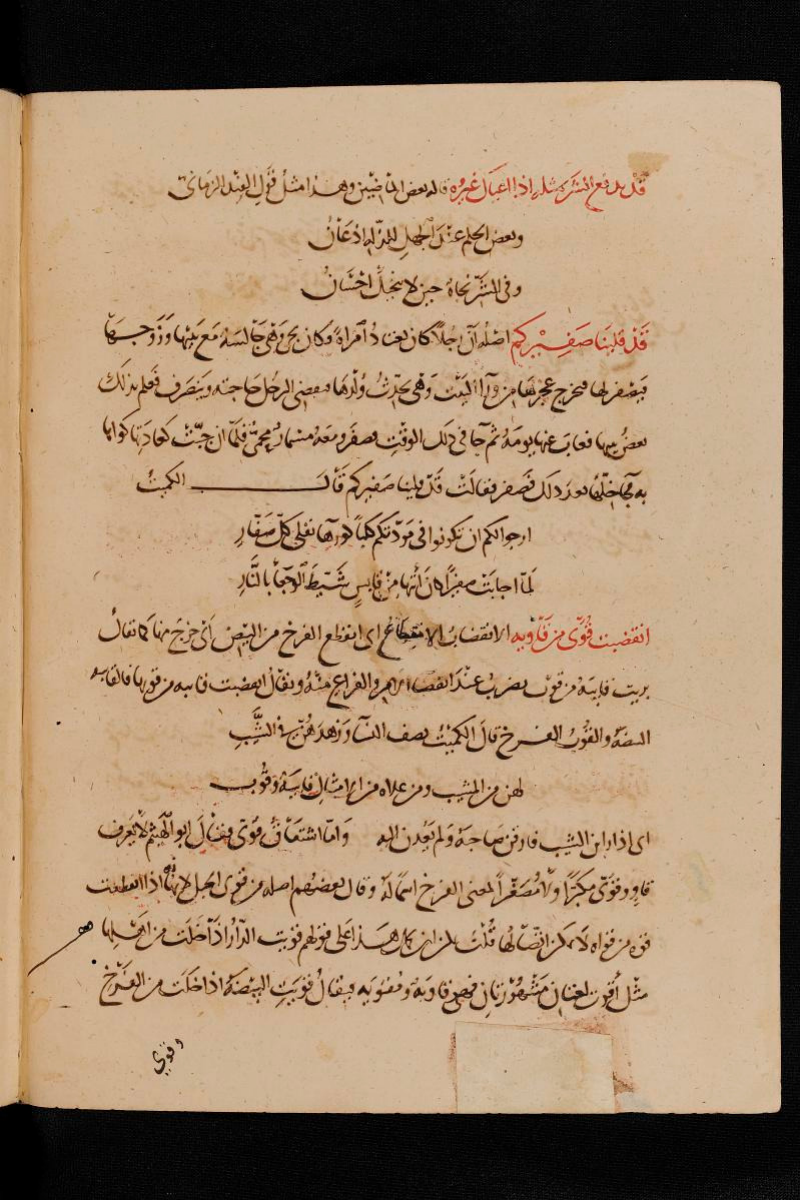 قَدْ يدفع الشر بمثله اذا اعيَاكَ غيرُه قاله بعض الماضيين وهذا مثلُ قَوْلِ الفِنْد الزمَاني
وبعض الحلم عنْدَ الجهلِ للذِّلة اذعَانُ
وفى الشرّ نجاةٌ حين لا ينجيكَ احْسَانُ
قَدْ قلينَا صَفِيْركم اصْلُه اَنّ رجلاً كان يعتادُ امراةً وكان يجى وَهْىَ جَالسَة مَعَ بَنِيْها وَزَوجهَا
فيَصْفر لها فتخرج عجزهَا من وراءِ البَيْت وهْىَ تحدّثُ وُلْدهَا فيقضى الرجُل حَاجته وينصَرف فعلم بذلك
بعضُ بنيها فغابَ عنها يومَهُ ثم جآ فى ذلك الوقتِ فصفَر ومعهُ مسْمارٌ محمىٌّ فلمّا ان جَآت كعَادَتِها كواها
به ثم جآ خلّها بعد ذلك فصَفر فقالَتْ قَدْ قلينا صفيركم قَالـــــــ الكميتُ
ارجوالكم ان تكونوا فى مَودّتكم كلباً كورهآ تقلى كلّ صَفّارِ
لَمّا اجابَتْ صفيراً كانَ آتيها مِنْ قابِسٍ شَيّطَ الوَجْعَآ بالنّارِ
انقضبت قُوْىٌ من قَاْوبه الانقضابُ الانقطاع اى انقطع الفرخ من البيْض اَىْ خرج منها كما يقالُ
بريت قايبَة من قوب يضربُ عنْدَ انقضآ الامر والفراغ منْه ويقَالُ انقضبت قايبه من قوبها فالقايبه
البيضَة والقُوْبُ الفــرخ قالَ الكميْتُ يصف النسآ وزهدهُنّ فى الشّيبِ
لهن من المشيب ومن علاه من الامثال قايبَة وقُوْب
اى اذا راين الشيب فارقن صاحبَه ولم يَعُدن اليه وَامّا اشتقاقُ قوىّ فقالَ ابو الهَيْثم لا يعرف
قاوٍ وقوىّ مكبّراً ولا مُصَغّراً لمعنى الفرخ اسمًا لهُ وقال بعضهُم اصله من قوى الحبل لانهُ اذا انقطعت
قوه من قواه لا يمكن اتّصَالها قُلْتُ يمكن ان يكون هَذا على قولهم قويت الدّارُ اذا خَلَت من اهلها
مثل اَقوت لغتان مشْهُوْرتان فهى قاويَة ومُقويه فيقالُ قويَتِ البيْضَةُ اذا خلَتَ من الفَرْخِ
وقوى